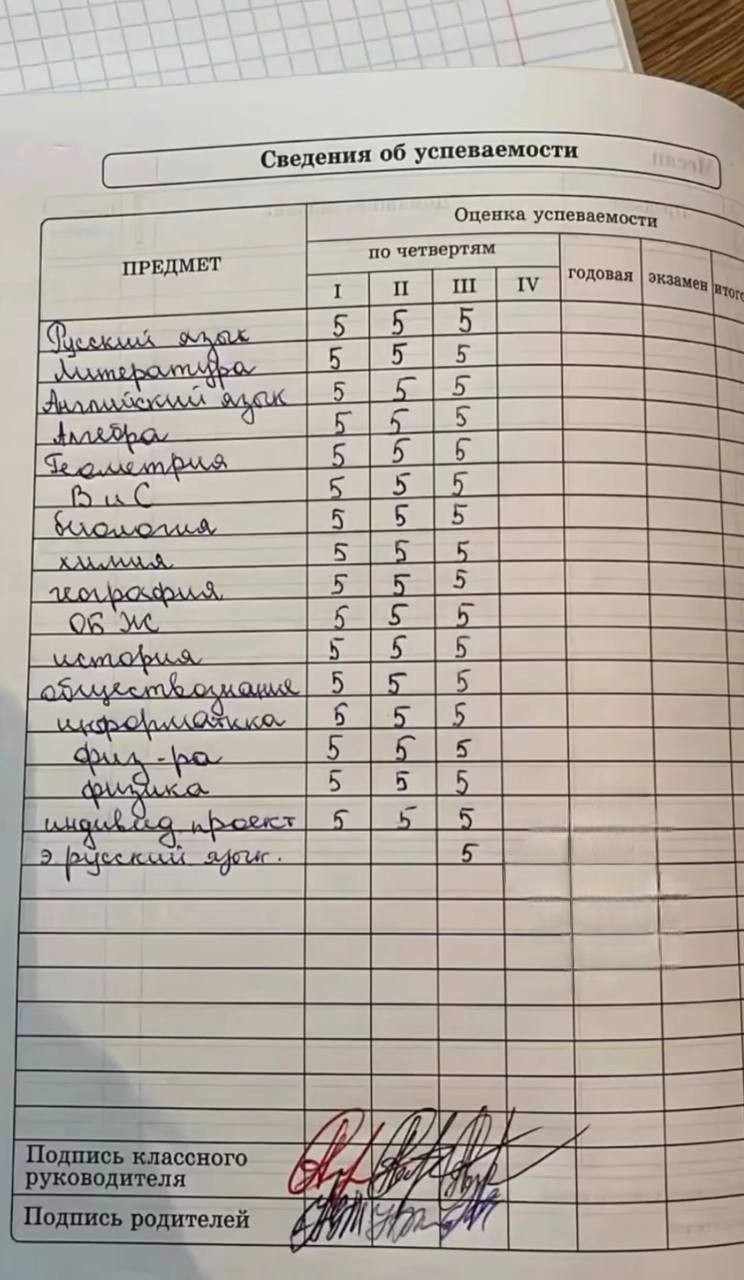 Сведения об успеваемости
ПРЕДМЕТ
Оценка успеваемости
по четвертям
годовая экзамен итого
I II III IV
Русский язык 5 5 5
Литература 5 5 5
Английский язык 5 5 5
Алгебра 5 5 5
Геометрия 5 5 5
В и С 5 5 5
биология 5 5 5
химия 5 5 5
география 5 5 5
ОБЖ 5 5 5
история 5 5 5
обществознание 5 5 5
информатика 5 5 5
физ-ра 5 5 5
физика 5 5 5
индивид проект 5 5 5
э русский язык. 5
Подпись классного
руководителя
Подпись родителей